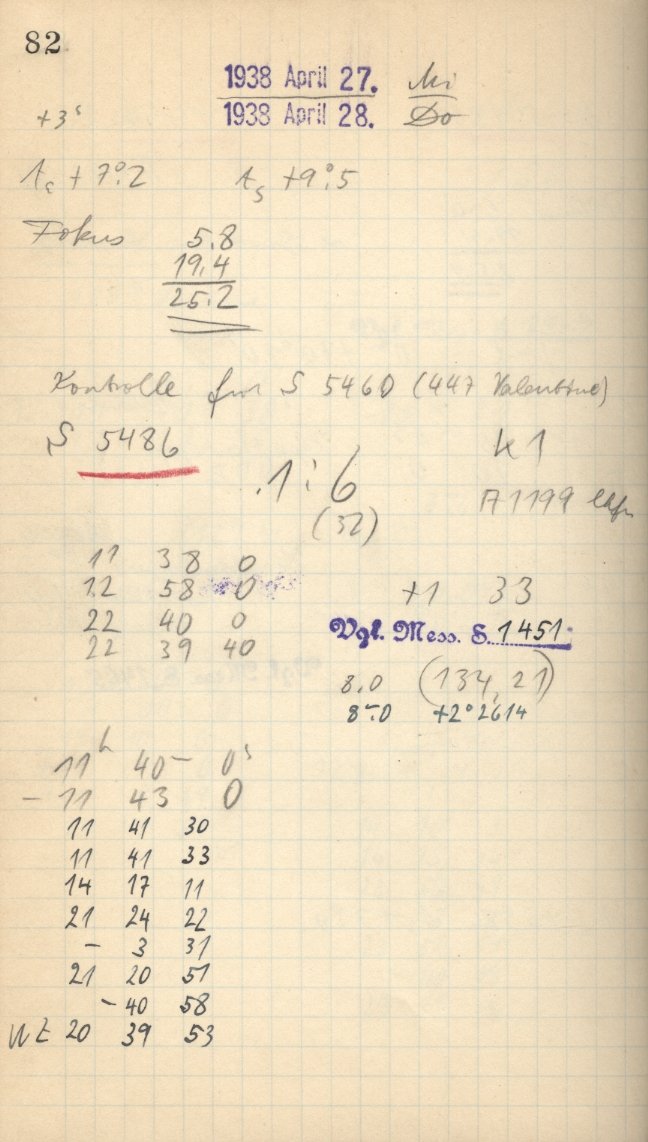 82
1938 April 27. Mi
1938 April 28. Do
+3ˢ
t + 7°.2 t +9°.5
Fokus 5.8
19.4
25.2
Kontrolle für S 5460 (447 Valentine)
S 5486
K1
1:6
(32)
A 1199
11 38 0
12 58 0
22 40 0
22 39 40
+1 33
Vgl. Mess. S. 1451
8.0 (134, 21)
+2° 2614
11ʰ 40 0ˢ
– 11 43 0
11 41 30
11 41 33
14 17 11
21 24 22
– 3 31
21 20 51
– 40 58
20 39 53